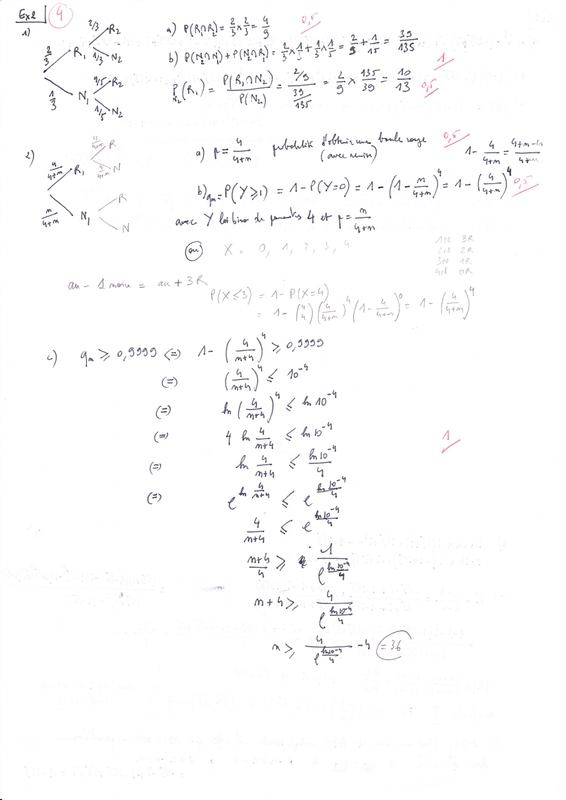 Ex2 4
1) 2/3 R₁ 2/3 R₂ 1/3 N₂
1/3 N₁ 4/5 R₂ 1/5 N₂
a) P(R₁∩R₂) = 2/3 × 2/3 = 4/9 0,5
b) P(N₂∩R₁) + P(N₂∩N₁) = 2/3 × 1/3 + 1/3 × 1/5 = 2/9 + 1/15 = 39/135 1
P_{N₂}(R₁) = P(R₁∩N₂)/P(N₂) = (2/9)/(39/135) = 2/9 × 135/39 = 10/13 0,5
2) 4/(4+n) R₁ 4/(4+n) R N
n/(4+n) N₁ R N
a) p = 4/(4+n) probabilité d'obtenir une boule rouge 0,5 1 - 4/(4+n) =
(avec remise)
b) qₙ = P(Y≥1) = 1 - P(Y=0) = 1 - (1 - n/(4+n))⁴ = 1 - (4/(4+n))⁴ 0,5
avec Y loi de 4 et p = n/(4+n)
ou X = 0, 1, 2, 3, 4
1N 3R
2N 2R
3N 1R
4N 0R
au - 1 noire = au + 3R
P(X≤3) = 1 - P(X=4)
= 1 - (4 4) (4/(4+n))⁴ (1 - 4/(4+n))⁰ = 1 - (4/(4+n))⁴
c) qₙ ≥ 0,9999 (=) 1 - (4/(n+4))⁴ ≥ 0,9999
(=) (4/(n+4))⁴ ≤ 10⁻⁴
(=) ln (4/(n+4))⁴ ≤ ln 10⁻⁴
(=) 4 ln 4/(n+4) ≤ ln 10⁻⁴ 1
(=) ln 4/(n+4) ≤ ln 10⁻⁴/4
(=) e^(ln 4/(n+4)) ≤ e^(ln 10⁻⁴/4)
4/(n+4) ≤ e^(ln 10⁻⁴/4)
(n+4)/4 ≥ 1/e^(ln 10⁻⁴/4)
n+4 ≥ 4/e^(ln 10⁻⁴/4)
n ≥ 4/e^(ln 10⁻⁴/4) - 4 = 36